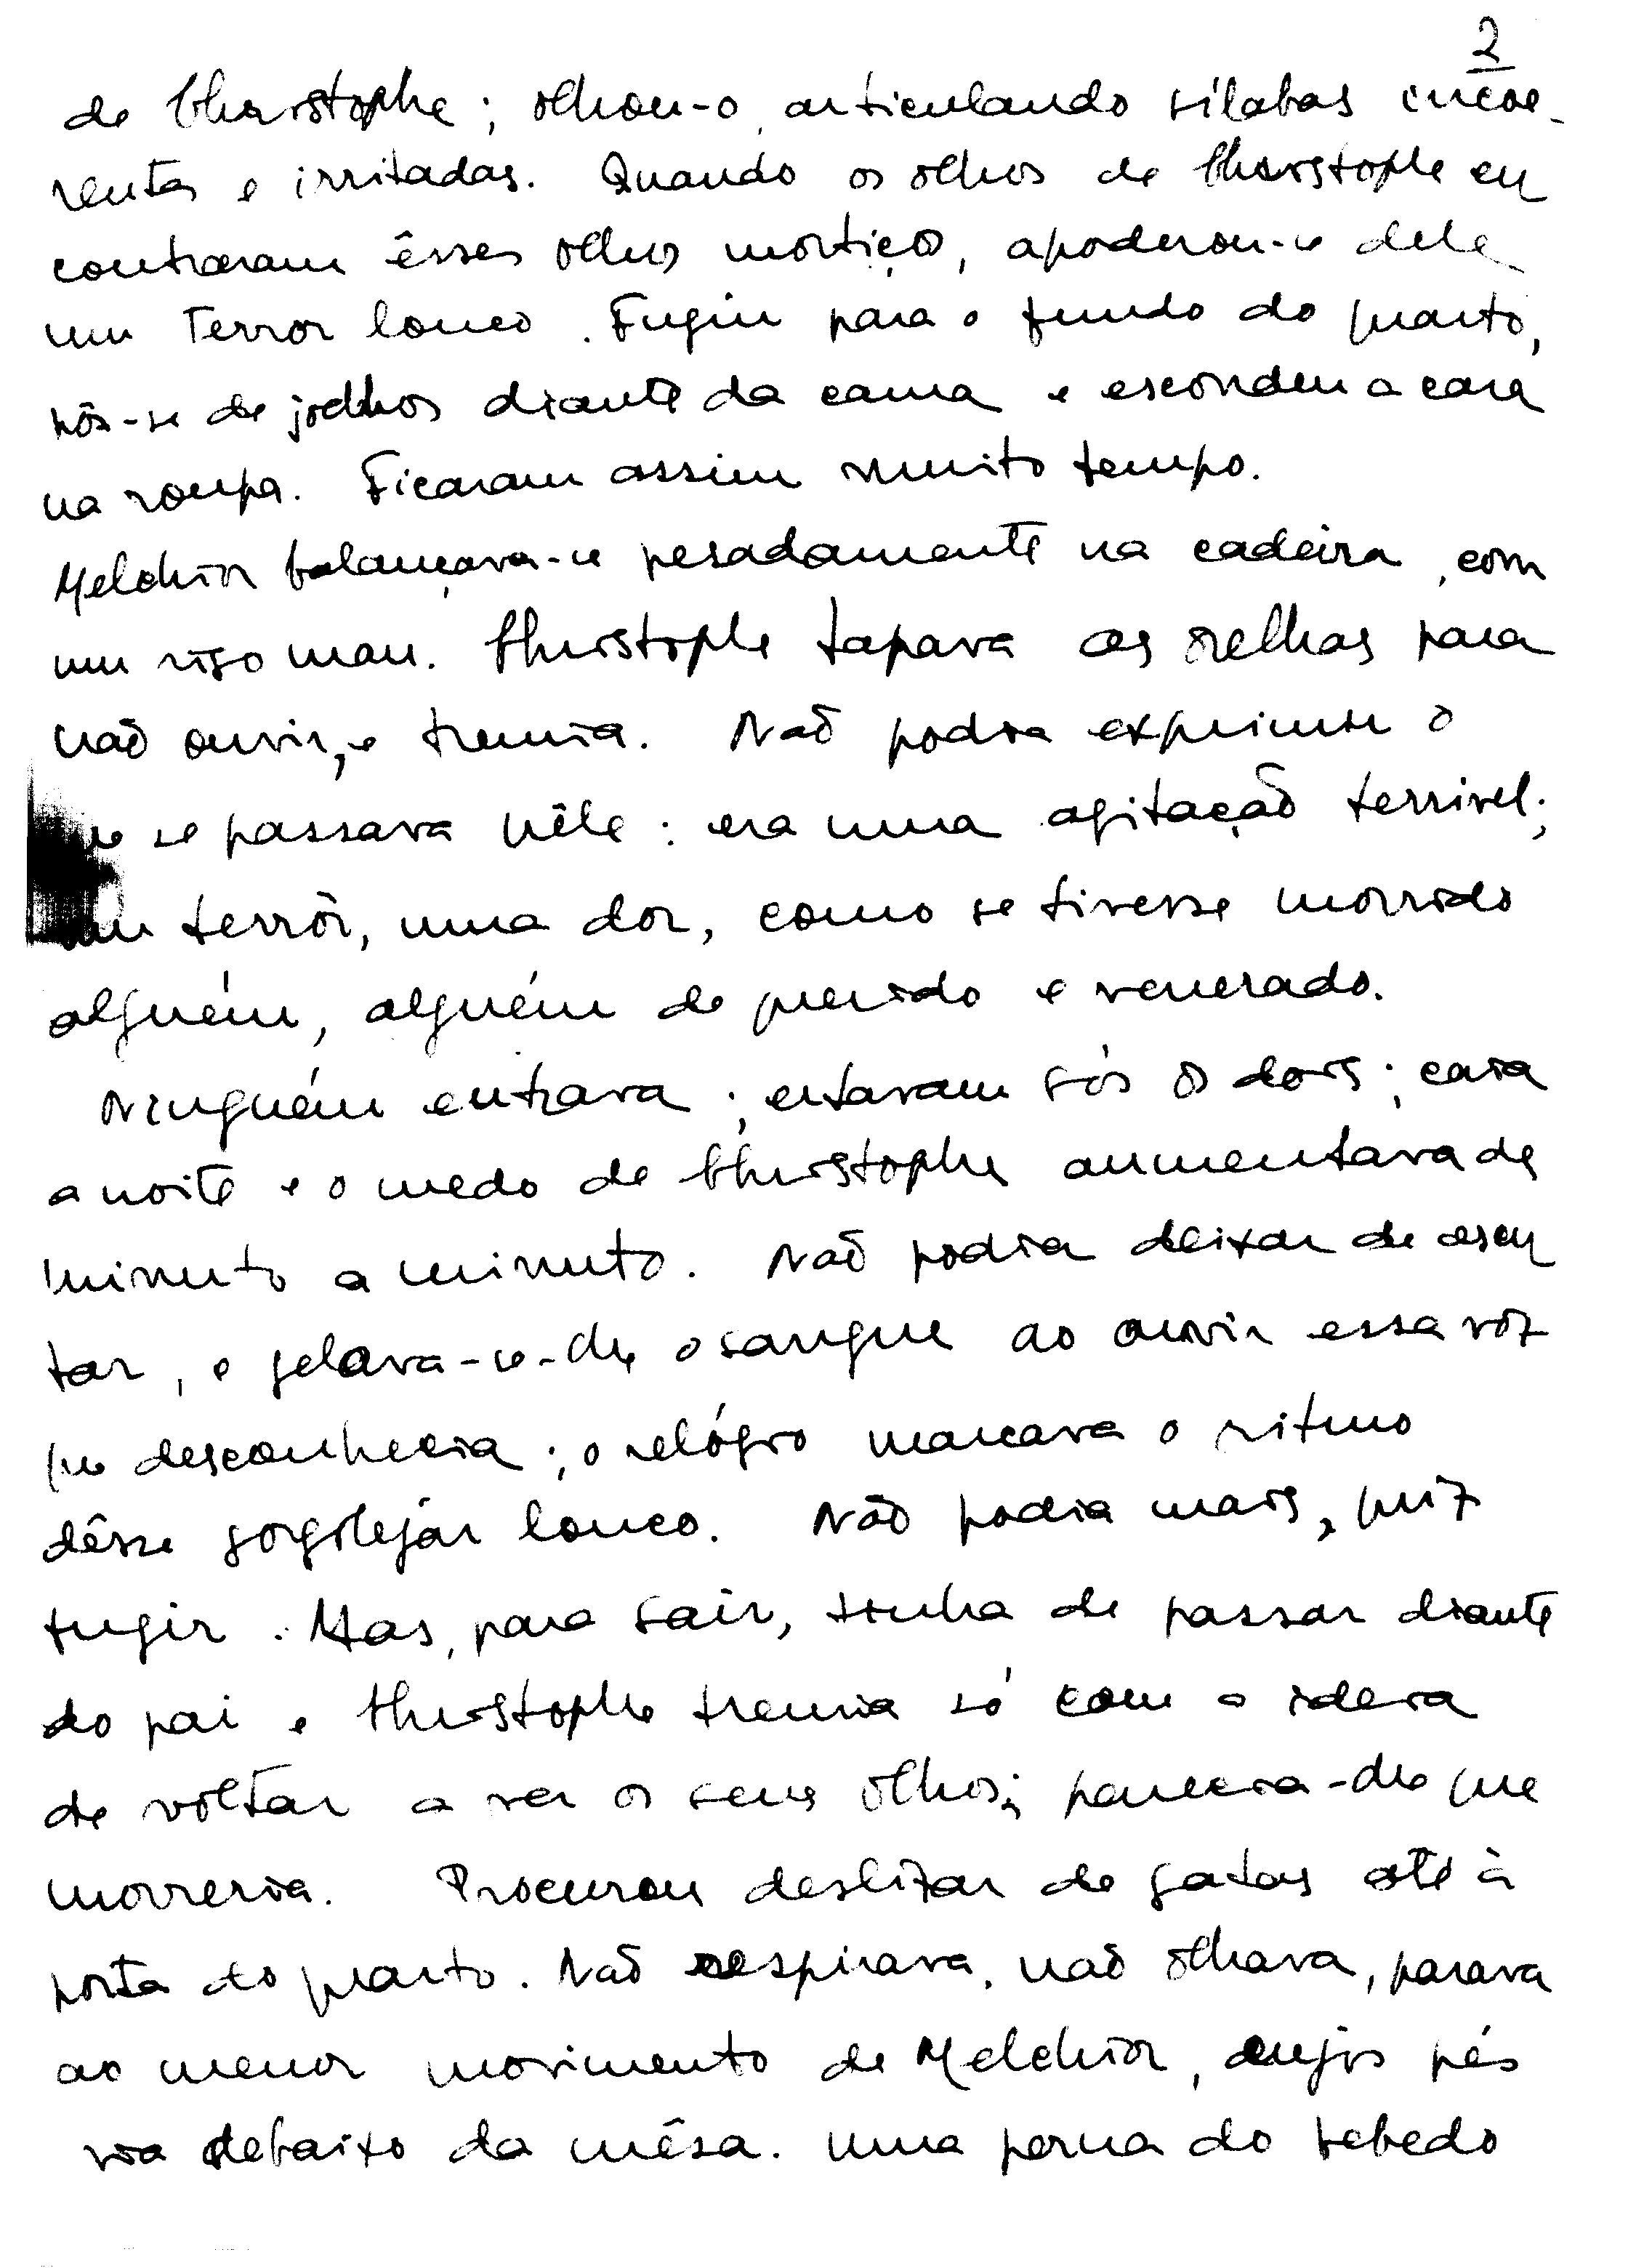 2
de Christophe; olhou-o, articulando sílabas incoe-
rentes e irritadas. Quando os olhos de Christophe en
contraram êsses olhos mortiços, apoderou-se dele
um terror louco. Fugiu para o fundo do quarto,
pôs-se de joelhos diante da cama e escondeu a cara
na roupa. Ficaram assim muito tempo.
Melchior balançava-se pesadamente na cadeira, com
um riso mau. Christophe tapava as orelhas para
não ouvir, e tremia. Não podia exprimir-se o
que se passava nêle: era uma agitação terrivel;
um terrôr, uma dor, como se tivesse morrido
alguém, alguém de querido e venerado.
Ninguém entrava; estavam sós os dois; caia
a noite e o medo de Christophe aumentava de
minuto a minuto. Não podia deixar de escu
tar, e gelava-se-lhe o sangue ao ouvir essa vóz
que desconhecia; o relógio marcava o ritmo
dêsse gorgolejar louco. Não podia mais, quiz
fugir. Mas, para sair, tinha de passar diante
do pai e Christophe tremia só com a ideia
de voltar a ver os seus olhos; parecia-lhe que
morreria. Procurou deslizar de gatas até à
porta do quarto. Não respirava, não olhava, parava
ao menor movimento de Melchior, cujos pés
via debaixo da mêsa. Uma perna do bebedo